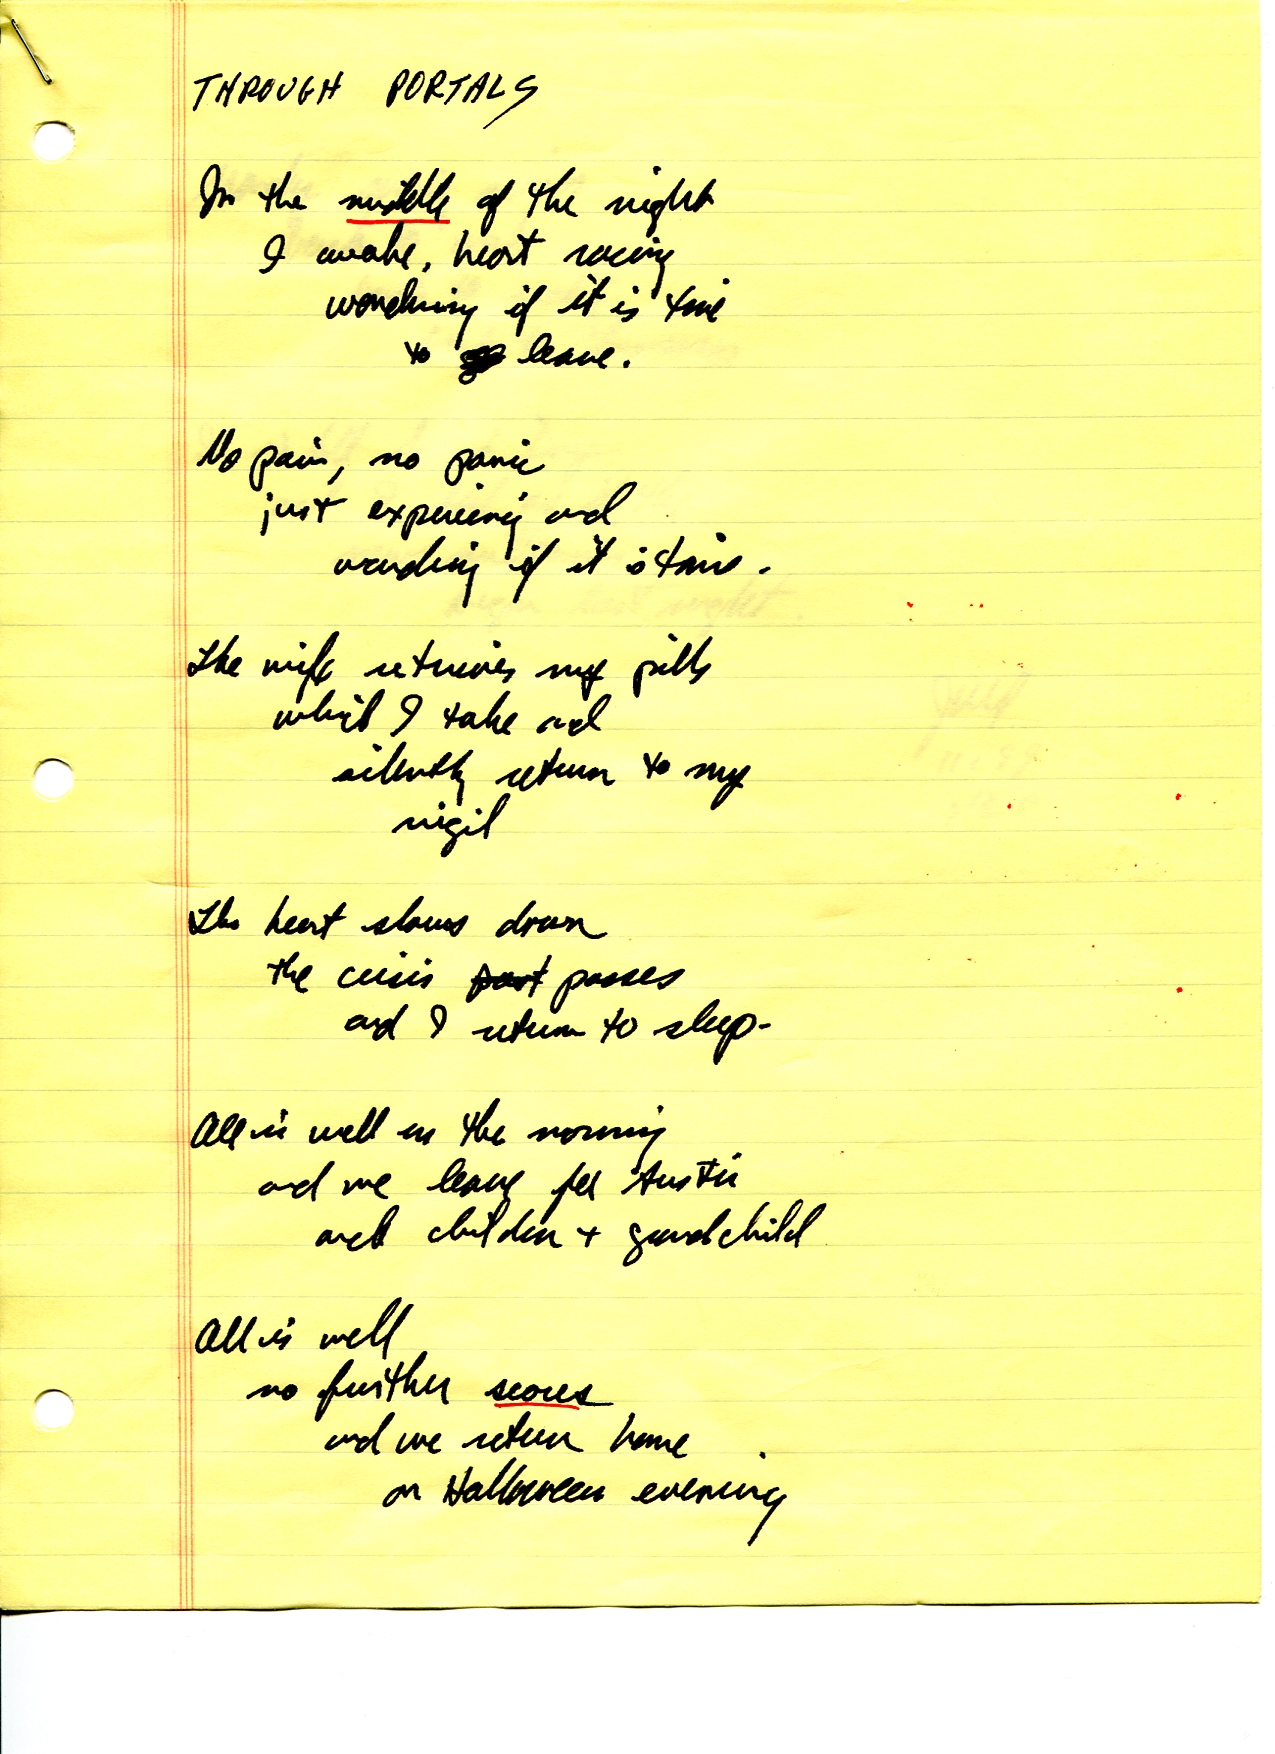 THROUGH PORTALS
In the middle of the night
I awake, heart racing
wondering if it is time
to leave.
No pain, no panic
just experiencing and
wondering if it is time.
The wife retrieves my pills
which I take and
silently return to my
vigil
The heart slows down
the crisis past passes
and I return to sleep-
All is well in the morning
and we leave for Austin
and children + grandchild
All is well
no further scares
and we return home
on Halloween evening